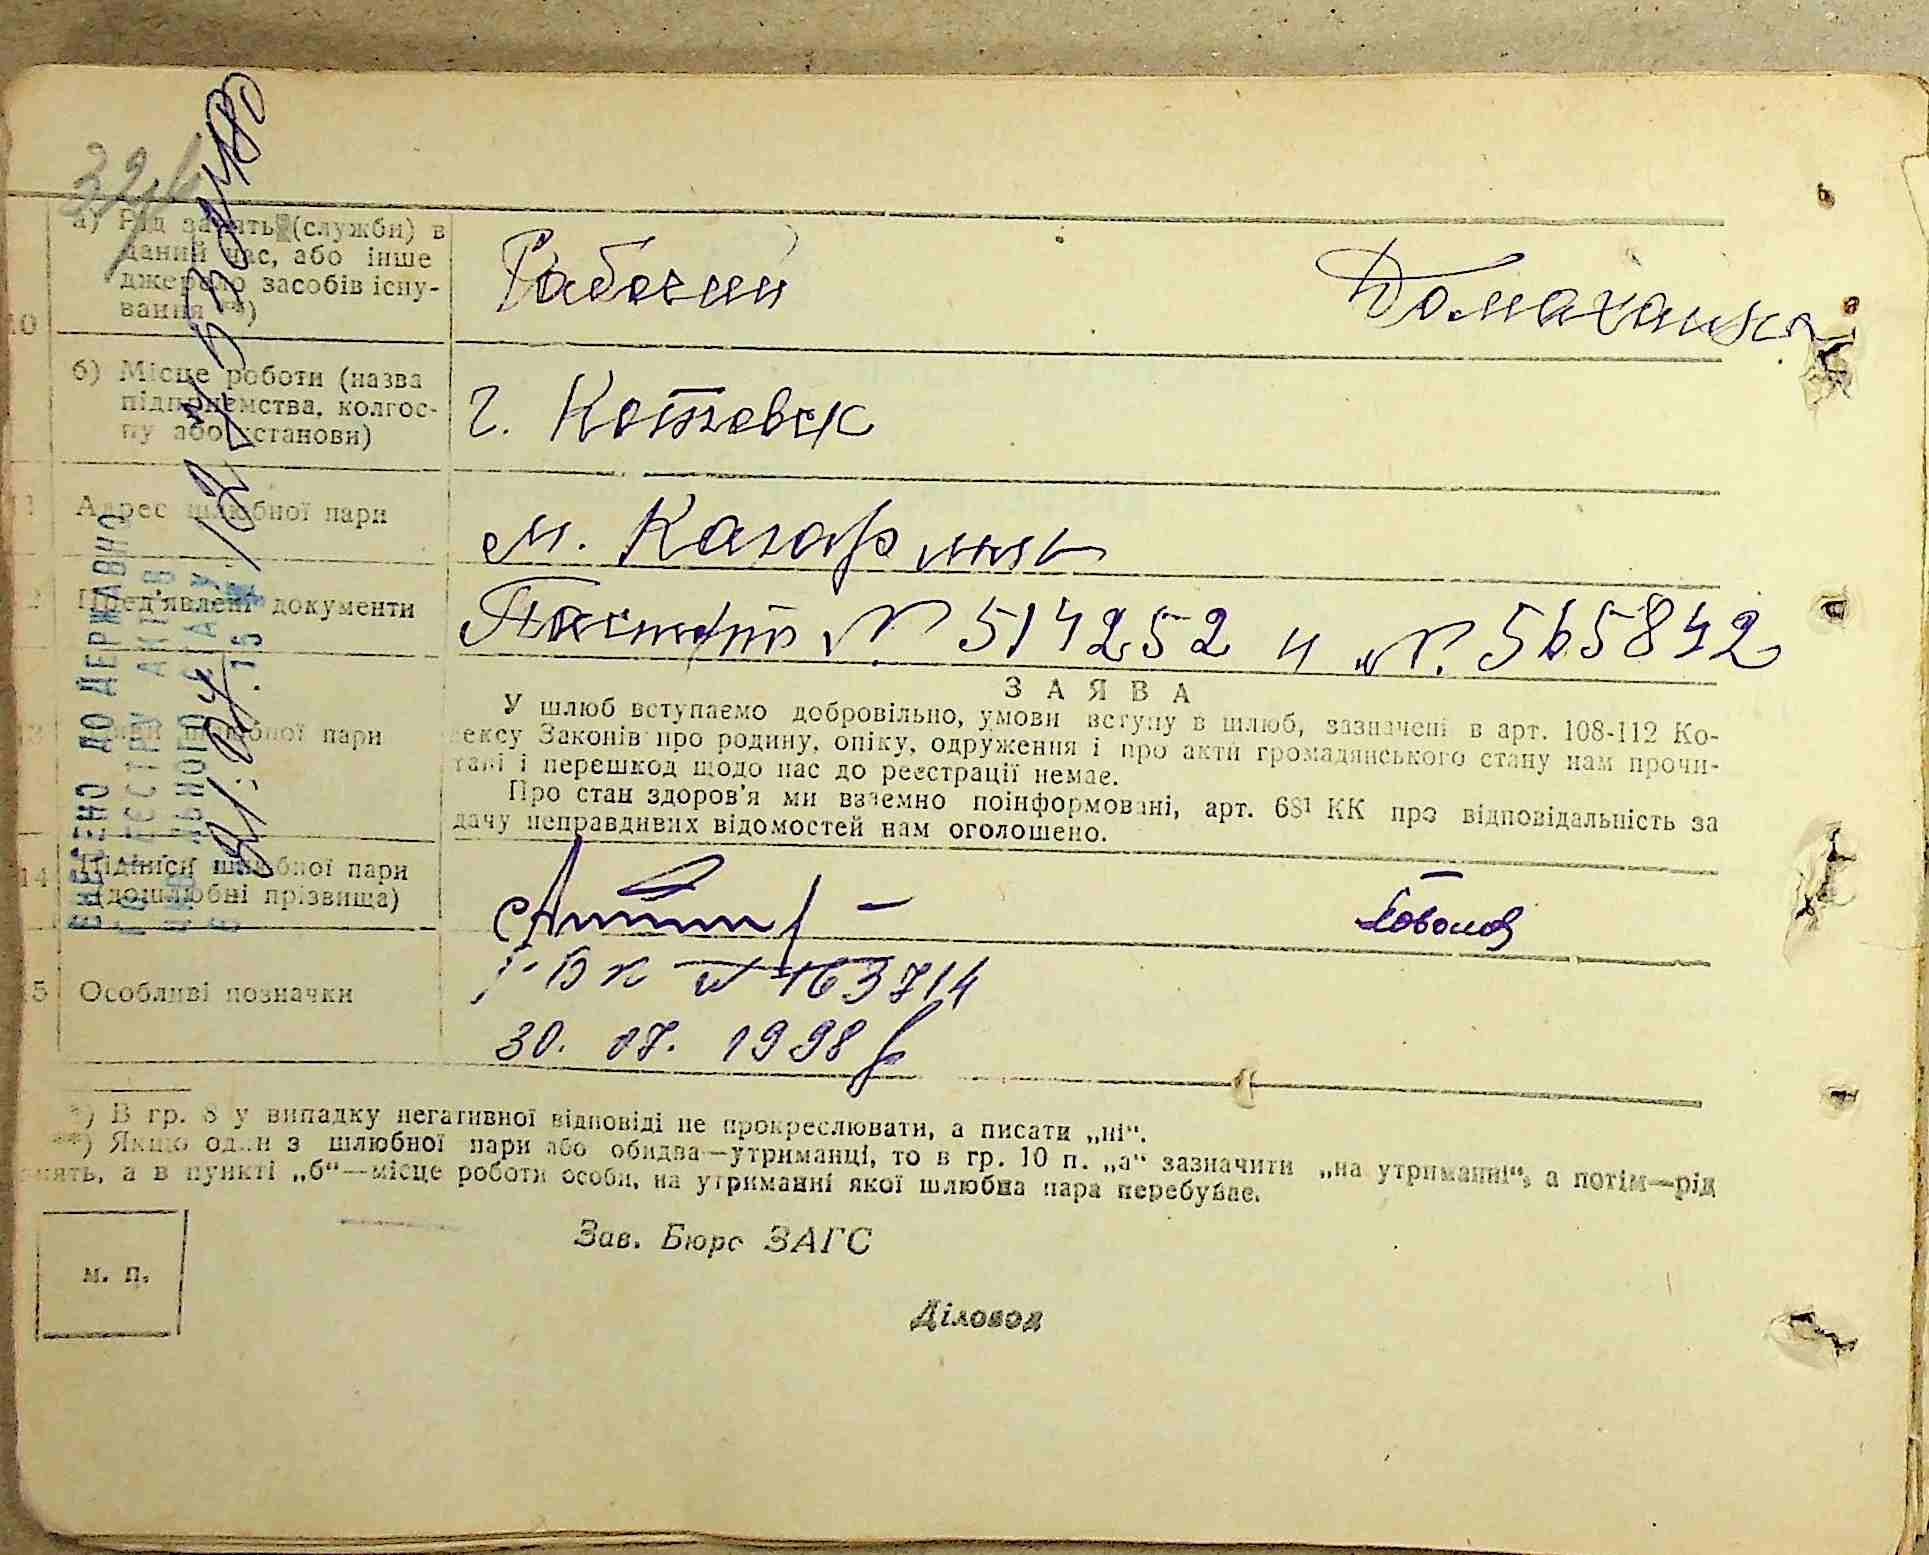 32
10 а) Рід занять (служби) в
даний час, або інше
джерело засобів існу-
вання **)
Рабочий
Домахазяйка
б) Місце роботи (назва
підприємства, колгос-
пу або установи)
г. Котовск
Адрес шлюбної пари
м. Кагарлик
Пред'явлені документи
Паспорт № 514252 и № 565842
шлюбної пари
ЗАЯВА
У шлюб вступаємо добровільно, умови вступу в шлюб, зазначені в арт. 108-112 Ко-
ексу Законів про родину, опіку, одруження і про акти громадянського стану нам прочи-
тані і перешкод щодо нас до реєстрації немає.
Про стан здоров'я ми взаємно поінформовані, арт. 68¹ КК про відповідальність за
дачу неправдивих відомостей нам оголошено.
14 Підписи шлюбної пари
(дошлюбні прізвища)
15 Особливі позначки
№ 163714
30. 07. 1998
*) В гр. 8 у випадку негативної відповіді не прокреслювати, а писати „ні“.
**) Якщо один з шлюбної пари або обидва—утриманці, то в гр. 10 п. „а“ зазначити „на утриманні“, а потім—рід
нять, а в пункті „б“—місце роботи особи, на утриманні якої шлюбна пара перебуває.
м. п.
Зав. Бюро ЗАГС
Діловод
ВНЕСЕНО ДО ДЕРЖАВНО
РЕЄСТРУ АКТІВ